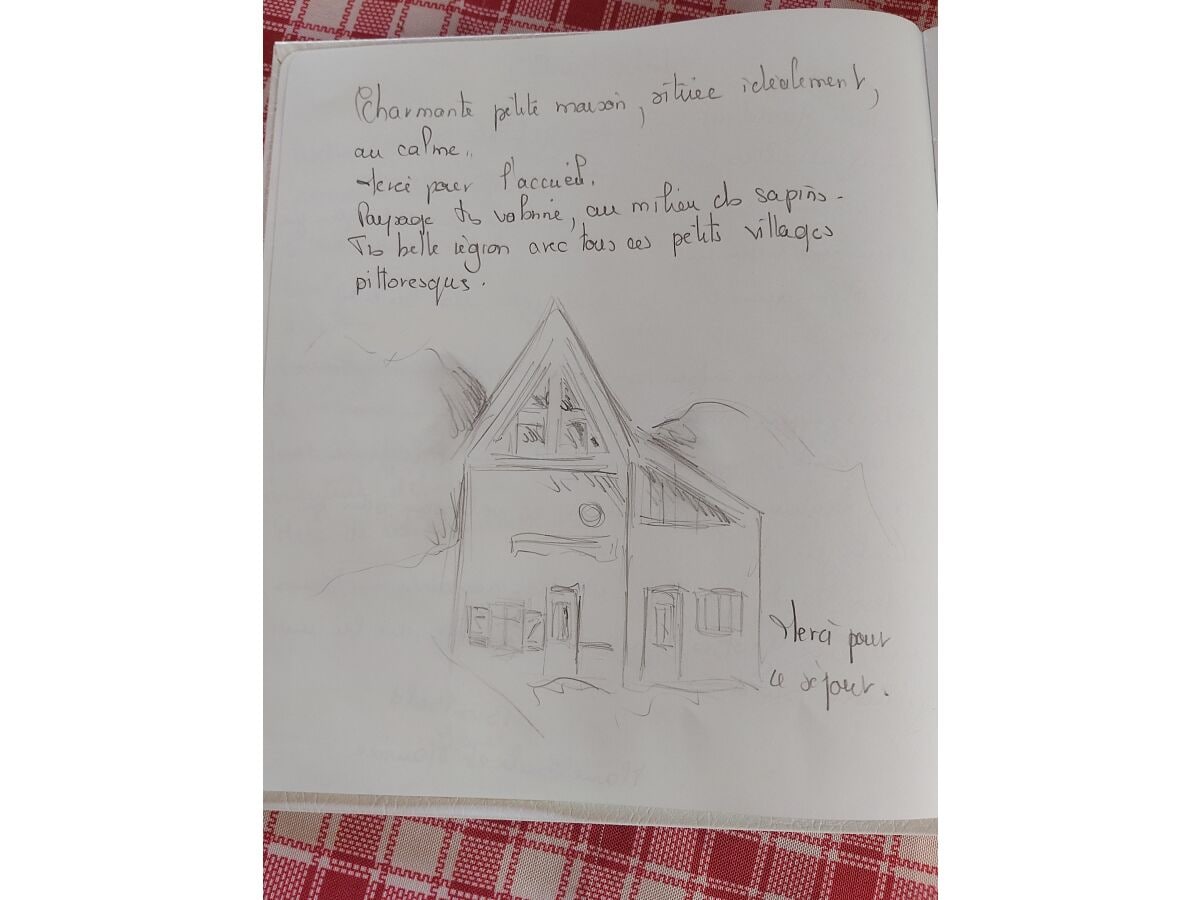 Charmante petite maison, située idéalement,
au calme..
Merci pour l'accueil.
Paysage Ts valonné, au milieu ds sapins.
Ts belle région avec tous ces petits villages
pittoresques.
Merci pour
ce séjour.